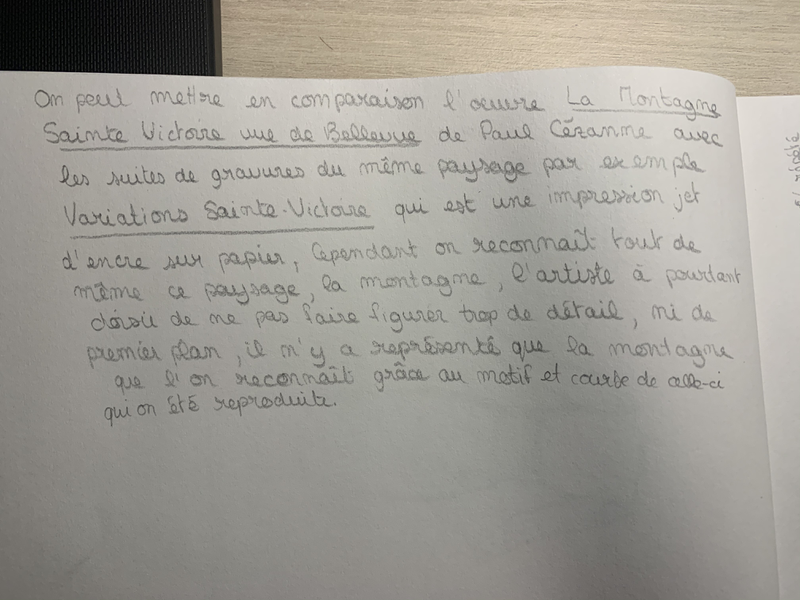 On peut mettre en comparaison l'œuvre La Montagne
Sainte Victoire vue de Bellevue de Paul Cézanne avec
les suites de gravures du même paysage par exemple
Variations Sainte-Victoire qui est une impression jet
d'encre sur papier, Cependant on reconnaît tout de
même ce paysage, la montagne, l'artiste à pourtant
choisi de ne pas faire figurer trop de détail, ni de
premier plan, il n'y a représenté que la montagne
que l'on reconnaît grâce au motif et courbe de celle-ci
qui on été reproduite.